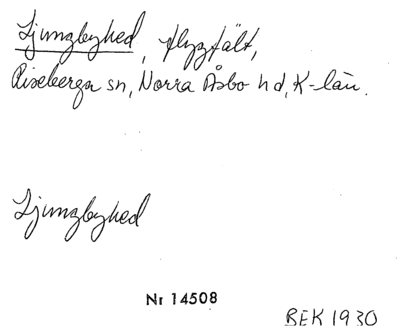 Ljungbyhed, flygfält,
Riseberga sn, Norra Åsbo hd, K-län.
Ljungbyhed
Nr 14508
BEK 1930